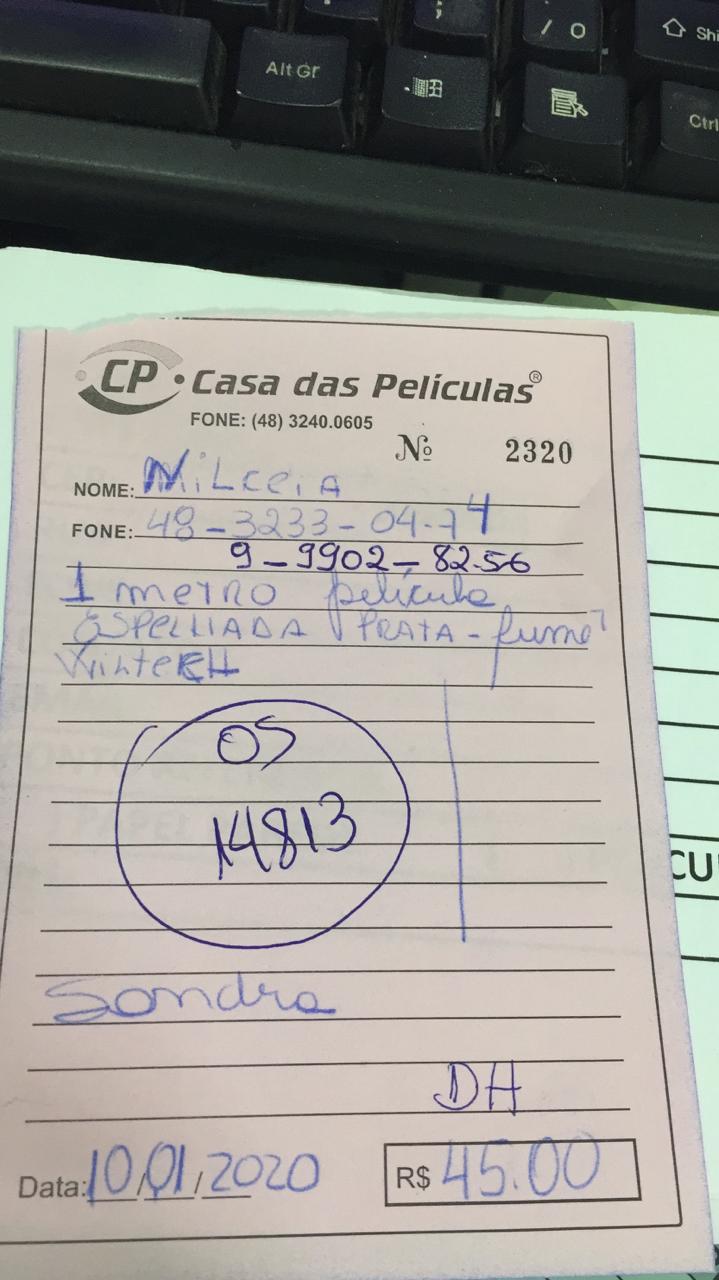 ; / O Shi
Alt Gr Ctrl
CP Casa das Películas®
FONE: (48) 3240.0605
Nº 2320
NOME: MiLCEiA
FONE: 48-3233-04-74
9-9902-82-56
1 metro película
ESPELHADA PRATA-fumê
OS
14813
Sandra
DH
Data: 10/01/2020 R$ 45.00
CU